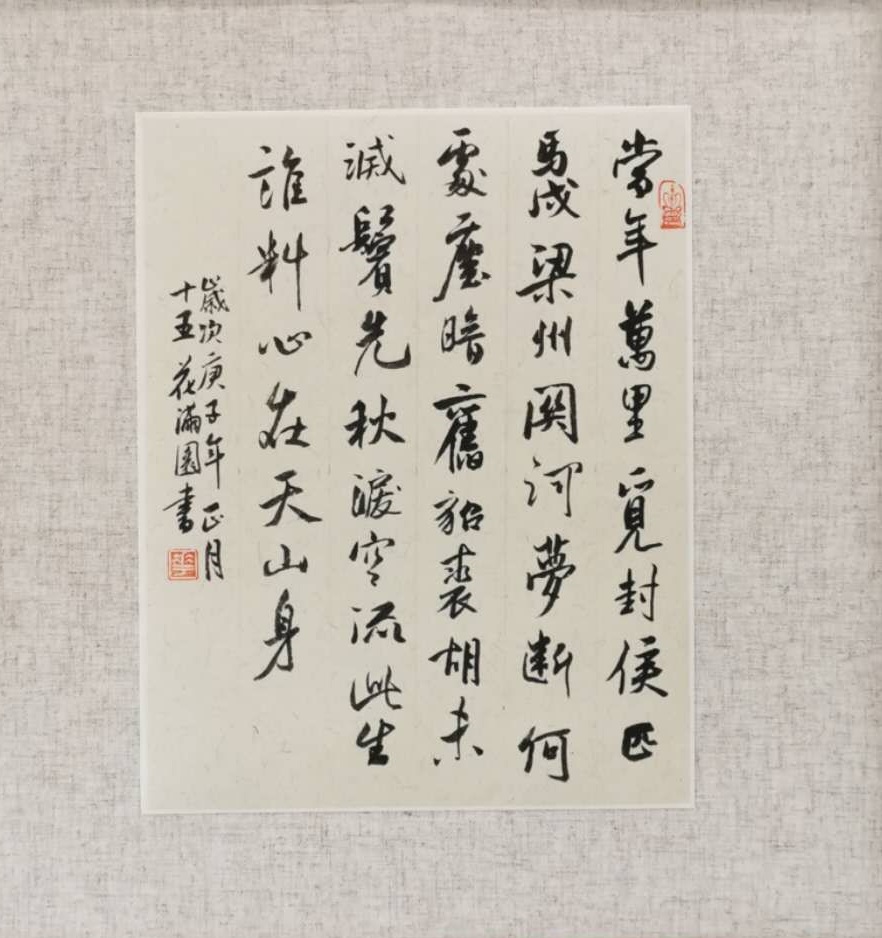 當年萬里覓封侯匹
馬戍梁州關河夢断何
處塵暗舊貂裘胡未
滅鬢先秋淚空流此生
誰料心在天山身
歲次庚子年正月
十五花滿園書